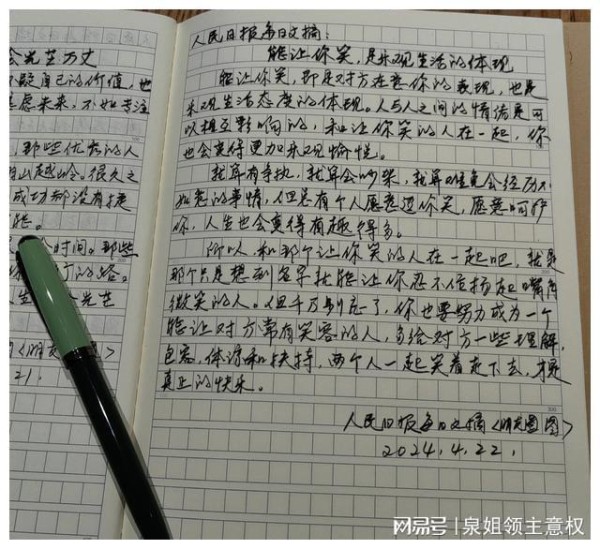 会光芒万丈
疑自己的价值，也
忧虑未来，不如专注
那些优秀的人
山越岭。很久之
成功都没有捷
时间。那些
光芒
21.
人民日报每日文摘：
能让你笑，是乐观生活的体现
能让你笑，即是对方在意你的表现，也是
乐观生活态度的体现。人与人之间的情绪是可
以相互影响的，和让你笑的人在一起，你
也会变得更加乐观愉悦。
就算有争执，就算会吵架，就算难免会经历不
如意的事情，但总有个人愿意逗你笑，愿意呵护
你，人生也会变得有趣得多。
所以，和那个让你笑的人在一起吧，就是
那个只是想到名字就能让你忍不住扬起嘴角
微笑的人。但千万别忘了，你也要努力成为一个
能让对方常有笑容的人，多给对方一些理解，
包容，体谅和扶持，两个人一起笑着走下去，才是
真正的快乐。
人民日报每日文摘
2024.4.22.
网易号 | 泉姐领主意权